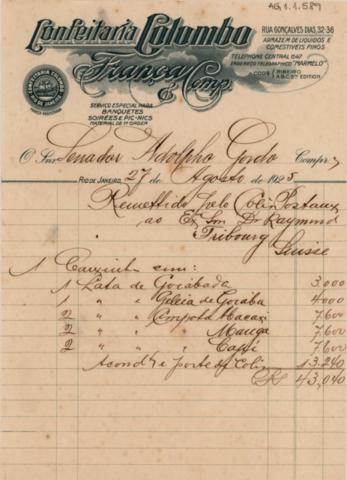 AG.1.1.589
Confeitaria Columbo
França & Comp.
RUA GONÇALVES DIAS, 32-36
ARMAZEM DE LIQUIDOS E
COMESTIVEIS FINOS
TELEPHONE CENTRAL 647
ENDEREÇO TELEGRAPHICO "MARMELO"
CODES RIBEIRO
A.B.C. 5ª EDITION
CONFEITARIA COLOMBO
SERVIÇO ESPECIAL PARA
BANQUETES
SOIRÉES E PIC-NICS
MATERIAL DE 1ª ORDEM
O Snr. Senador Adolpho Gordo Comprou
RIO DE JANEIRO, 27 de Agosto de 192
Remettido pelo Colis Postaux
ao Exmo Snr Dr Raymond
Fribourg
Suisse
1 Caixinha com:
1 Lata de Goiabada 3.000
1 " " Geleia de Goiaba 4000
2 " " Compota 7.600
2 " " Manga 7.600
2 " " Cajú 7.600
Acond. e porte do Colis 13.240
43,040